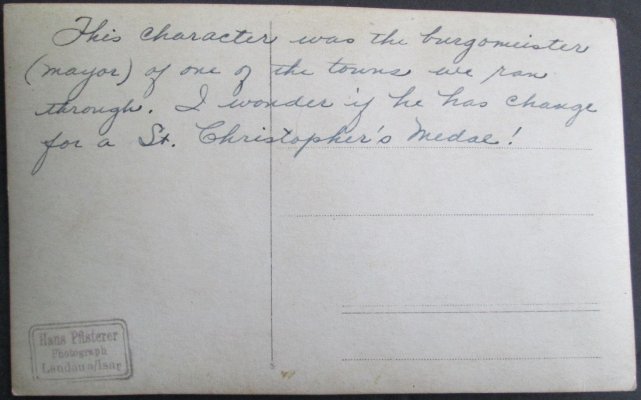 This character was the burgomeister
(mayor) of one of the towns we ran
through. I wonder if he has change
for a St. Christopher's Medal!
Hans Pfisterer
Photograph
Landau a/Isar